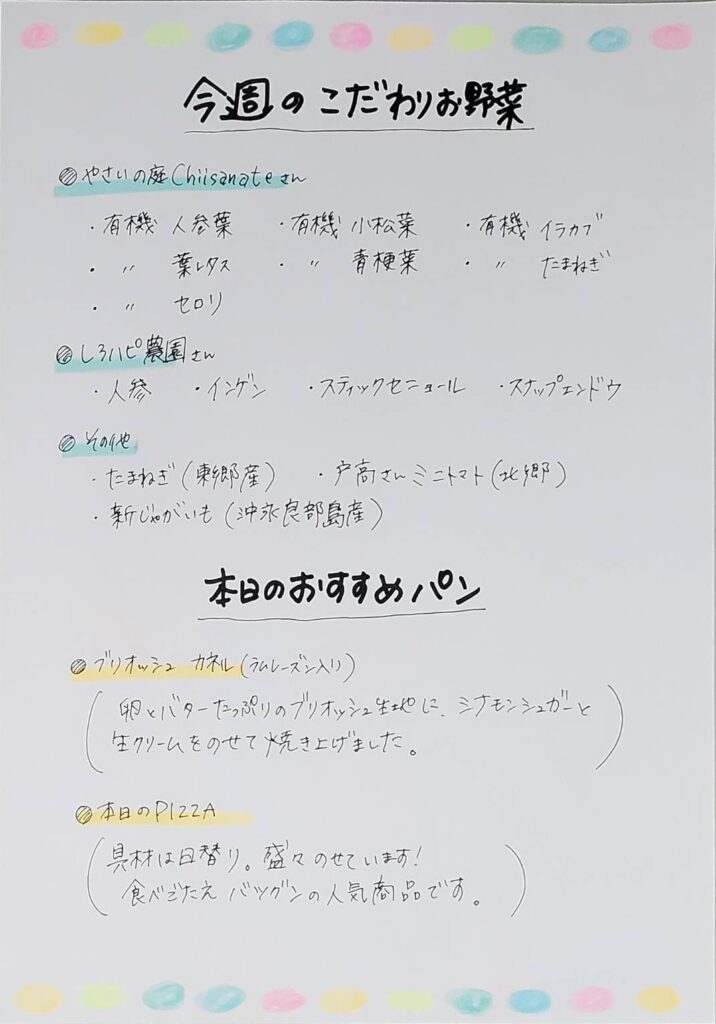 今週のこだわりお野菜
◎やさいの庭Chiisanateさん
・有機 人参葉 ・有機 小松菜 ・有機 イラカブ
・〃 葉レタス ・〃 青梗菜 ・〃 たまねぎ
・〃 セロリ
◎しろハピ農園さん
・人参 ・インゲン ・スティックセニョール ・スナップエンドウ
◎その他
・たまねぎ(東郷産) ・戸高さんミニトマト(北郷)
・新じゃがいも(沖永良部島産)
本日のおすすめパン
◎ブリオッシュ カネル(ラムレーズン入り)
(卵とバターたっぷりのブリオッシュ生地に、シナモンシュガーと
生クリームをのせて焼き上げました。)
◎本日のPIZZA
(具材は日替り。盛々のせています!
食べごたえバツグンの人気商品です。)